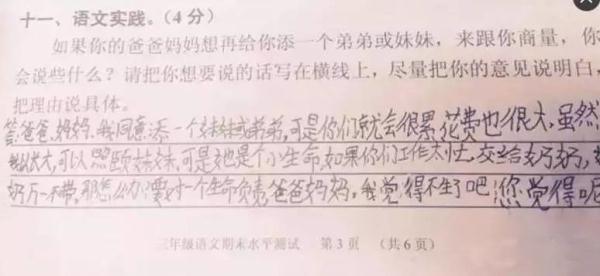 十一、语文实践。(4分)
如果你的爸爸妈妈想再给你添一个弟弟或妹妹，来跟你商量，你
会说些什么？请把你想要说的话写在横线上，尽量把你的意见说明白，
把理由说具体。
答:爸爸,妈妈,我同意添一个妹妹或弟弟,可是你们就会很累,花费也很大,虽然
长大,可以照顾妹妹,可是她是个小生命,如果你们工作太忙,交给奶奶,
奶万一不带,那怎么办?要对一个生命负责,爸爸妈妈,我觉得不生了吧!您觉得呢
三年级语文期末水平测试 第3页 (共6页)